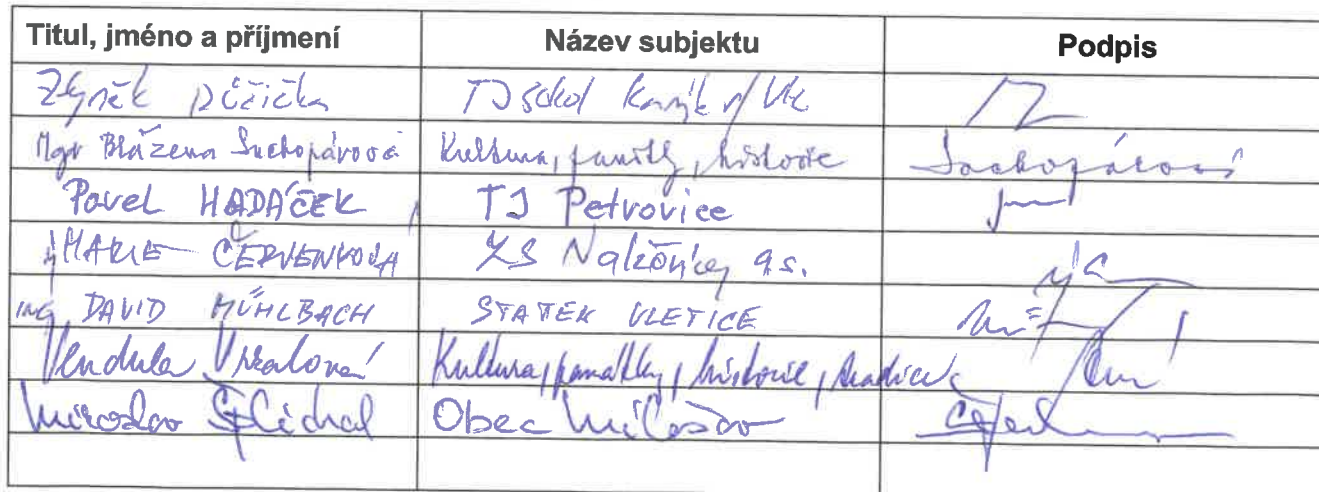 Titul, jméno a příjmení Název subjektu Podpis
Zbyněk Růžička TJ sokol
Mgr Blažena Suchopárová Kultura, památky, historie Suchopárová
Pavel HADÁČEK TJ Petrovice
MARIE ČERVENKOVÁ ZS Nalžovice, a.s.
ing DAVID MÜHLBACH STATEK VLETICE
Vendula Vrzalová Kultura, památky, historie, tradice
Miroslav Šplíchal Obec Milešov